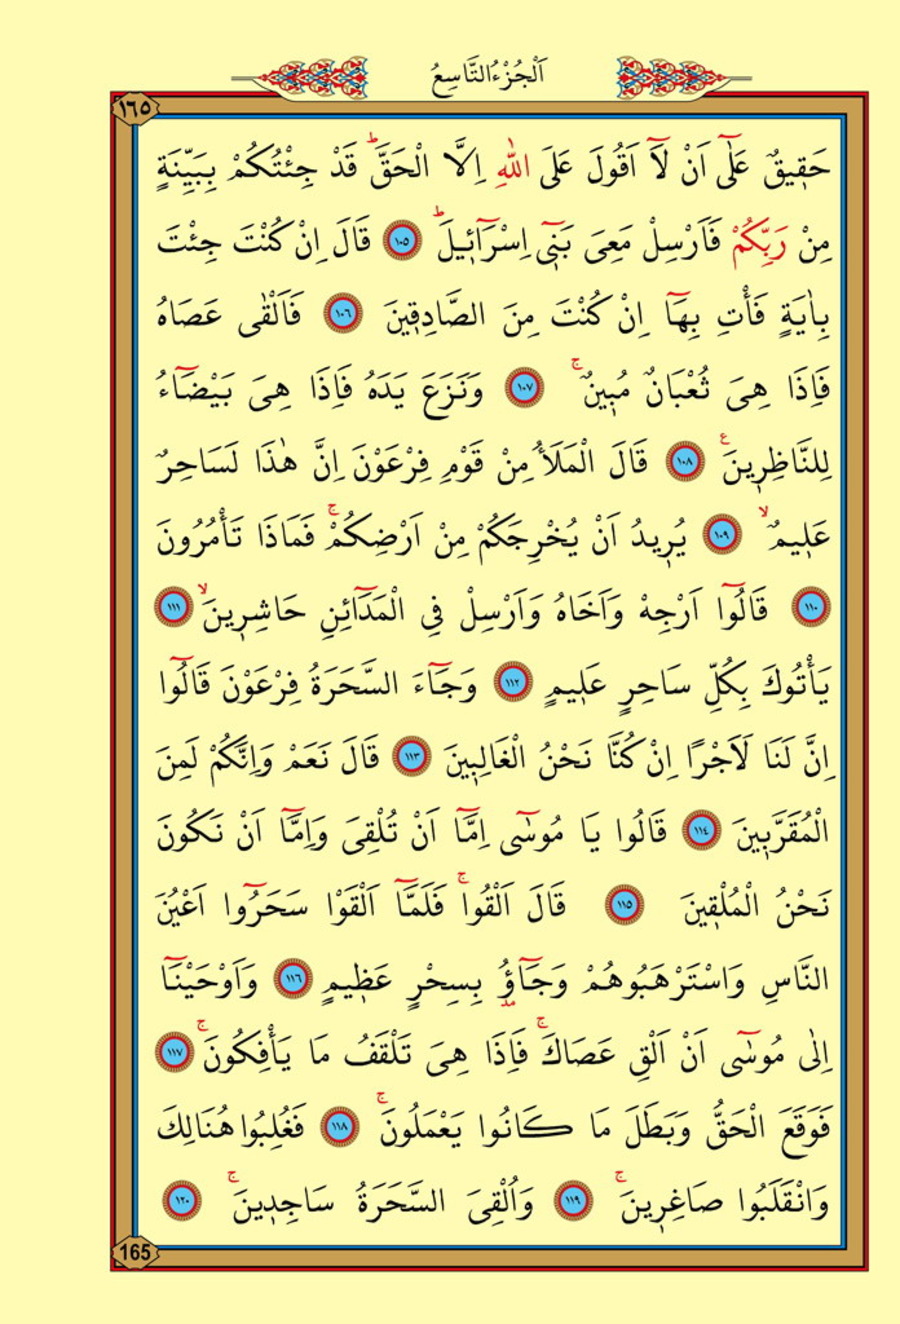 اَلْجُزْءُ التَّاسِعُ
١٦٥
حَقٖيقٌ عَلٰٓى اَنْ لَٓا اَقُولَ عَلَى اللّٰهِ اِلَّا الْحَقَّؕ قَدْ جِئْتُكُمْ بِبَيِّنَةٍ
مِنْ رَبِّكُمْ فَاَرْسِلْ مَعِىَ بَنٖٓى اِسْرَٓائٖيلَؕ ١٠٥ قَالَ اِنْ كُنْتَ جِئْتَ
بِاٰيَةٍ فَأْتِ بِهَٓا اِنْ كُنْتَ مِنَ الصَّادِقٖينَ ١٠٦ فَاَلْقٰى عَصَاهُ
فَاِذَا هِىَ ثُعْبَانٌ مُبٖينٌۚ ١٠٧ وَنَزَعَ يَدَهُ فَاِذَا هِىَ بَيْضَٓاءُ
لِلنَّاظِرٖينَࣖ ١٠٨ قَالَ الْمَلَاُ مِنْ قَوْمِ فِرْعَوْنَ اِنَّ هٰذَا لَسَاحِرٌ
عَلٖيمٌۙ ١٠٩ يُرٖيدُ اَنْ يُخْرِجَكُمْ مِنْ اَرْضِكُمْۚ فَمَاذَا تَأْمُرُونَ
١١٠ قَالُٓوا اَرْجِهْ وَاَخَاهُ وَاَرْسِلْ فِى الْمَدَٓائِنِ حَاشِرٖينَۙ ١١١
يَأْتُوكَ بِكُلِّ سَاحِرٍ عَلٖيمٍ ١١٢ وَجَٓاءَ السَّحَرَةُ فِرْعَوْنَ قَالُٓوا
اِنَّ لَنَا لَاَجْرًا اِنْ كُنَّا نَحْنُ الْغَالِبٖينَ ١١٣ قَالَ نَعَمْ وَاِنَّكُمْ لَمِنَ
الْمُقَرَّبٖينَ ١١٤ قَالُوا يَا مُوسٰٓى اِمَّٓا اَنْ تُلْقِىَ وَاِمَّٓا اَنْ نَكُونَ
نَحْنُ الْمُلْقٖينَ ١١٥ قَالَ اَلْقُواۚ فَلَمَّٓا اَلْقَوْا سَحَرُٓوا اَعْيُنَ
النَّاسِ وَاسْتَرْهَبُوهُمْ وَجَٓاؤُ بِسِحْرٍ عَظٖيمٍ ١١٦ وَاَوْحَيْنَٓا
اِلٰى مُوسٰٓى اَنْ اَلْقِ عَصَاكَۚ فَاِذَا هِىَ تَلْقَفُ مَا يَأْفِكُونَۚ ١١٧
فَوَقَعَ الْحَقُّ وَبَطَلَ مَا كَانُوا يَعْمَلُونَۚ ١١٨ فَغُلِبُوا هُنَالِكَ
وَانْقَلَبُوا صَاغِرٖينَۚ ١١٩ وَاُلْقِىَ السَّحَرَةُ سَاجِدٖينَۚ ١٢٠
165